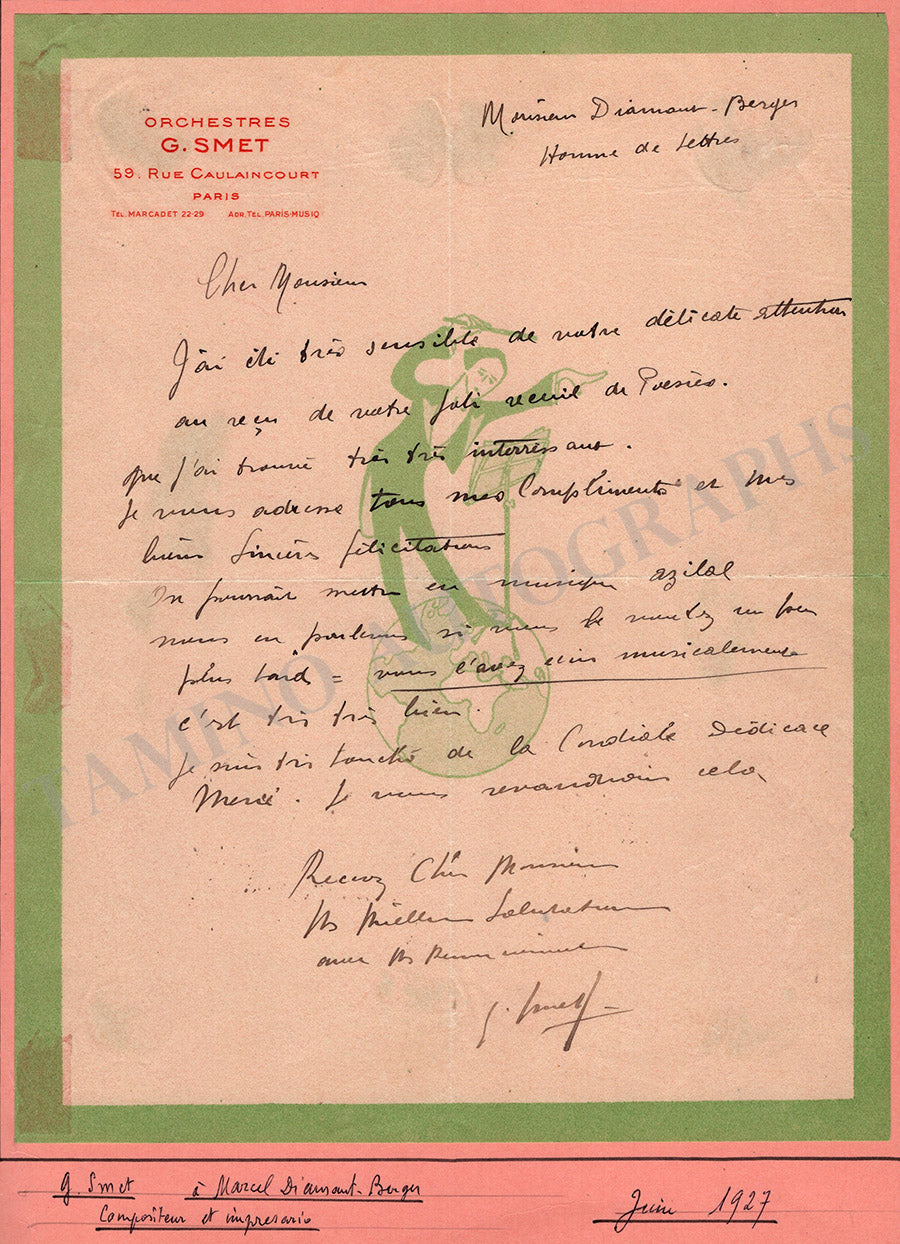 ORCHESTRES
G. SMET
59, RUE CAULAINCOURT
PARIS
TEL. MARCADET 22-29 ADR. TEL. PARIS-MUSIQ
Monsieur Diamant-Berger
Homme de Lettres
Cher Monsieur
J'ai été très sensible de votre délicate attention
au reçu de votre Joli recueil de Poesies.
que j'ai trouvé très très interressant.
Je vous adresse tous mes Compliments et mes
biens Sincères félicitations
On pourrait mettre en musique azilal
nous en parlerons si vous le voulez un peu
plus tard = vous l'avez écris musicalement
c'est très très bien.
Je suis très touché de la Cordiale Dédicace
Merci. Je vous revaudrais cela
Recevez Cher Monsieur
Mes Meilleures Salutations
avec Mes Remerciements
G. Smet
TAMINO AUTOGRAPHS
G. Smet à Marcel Diamant-Berger
Compositeur et impresario
Juin 1927